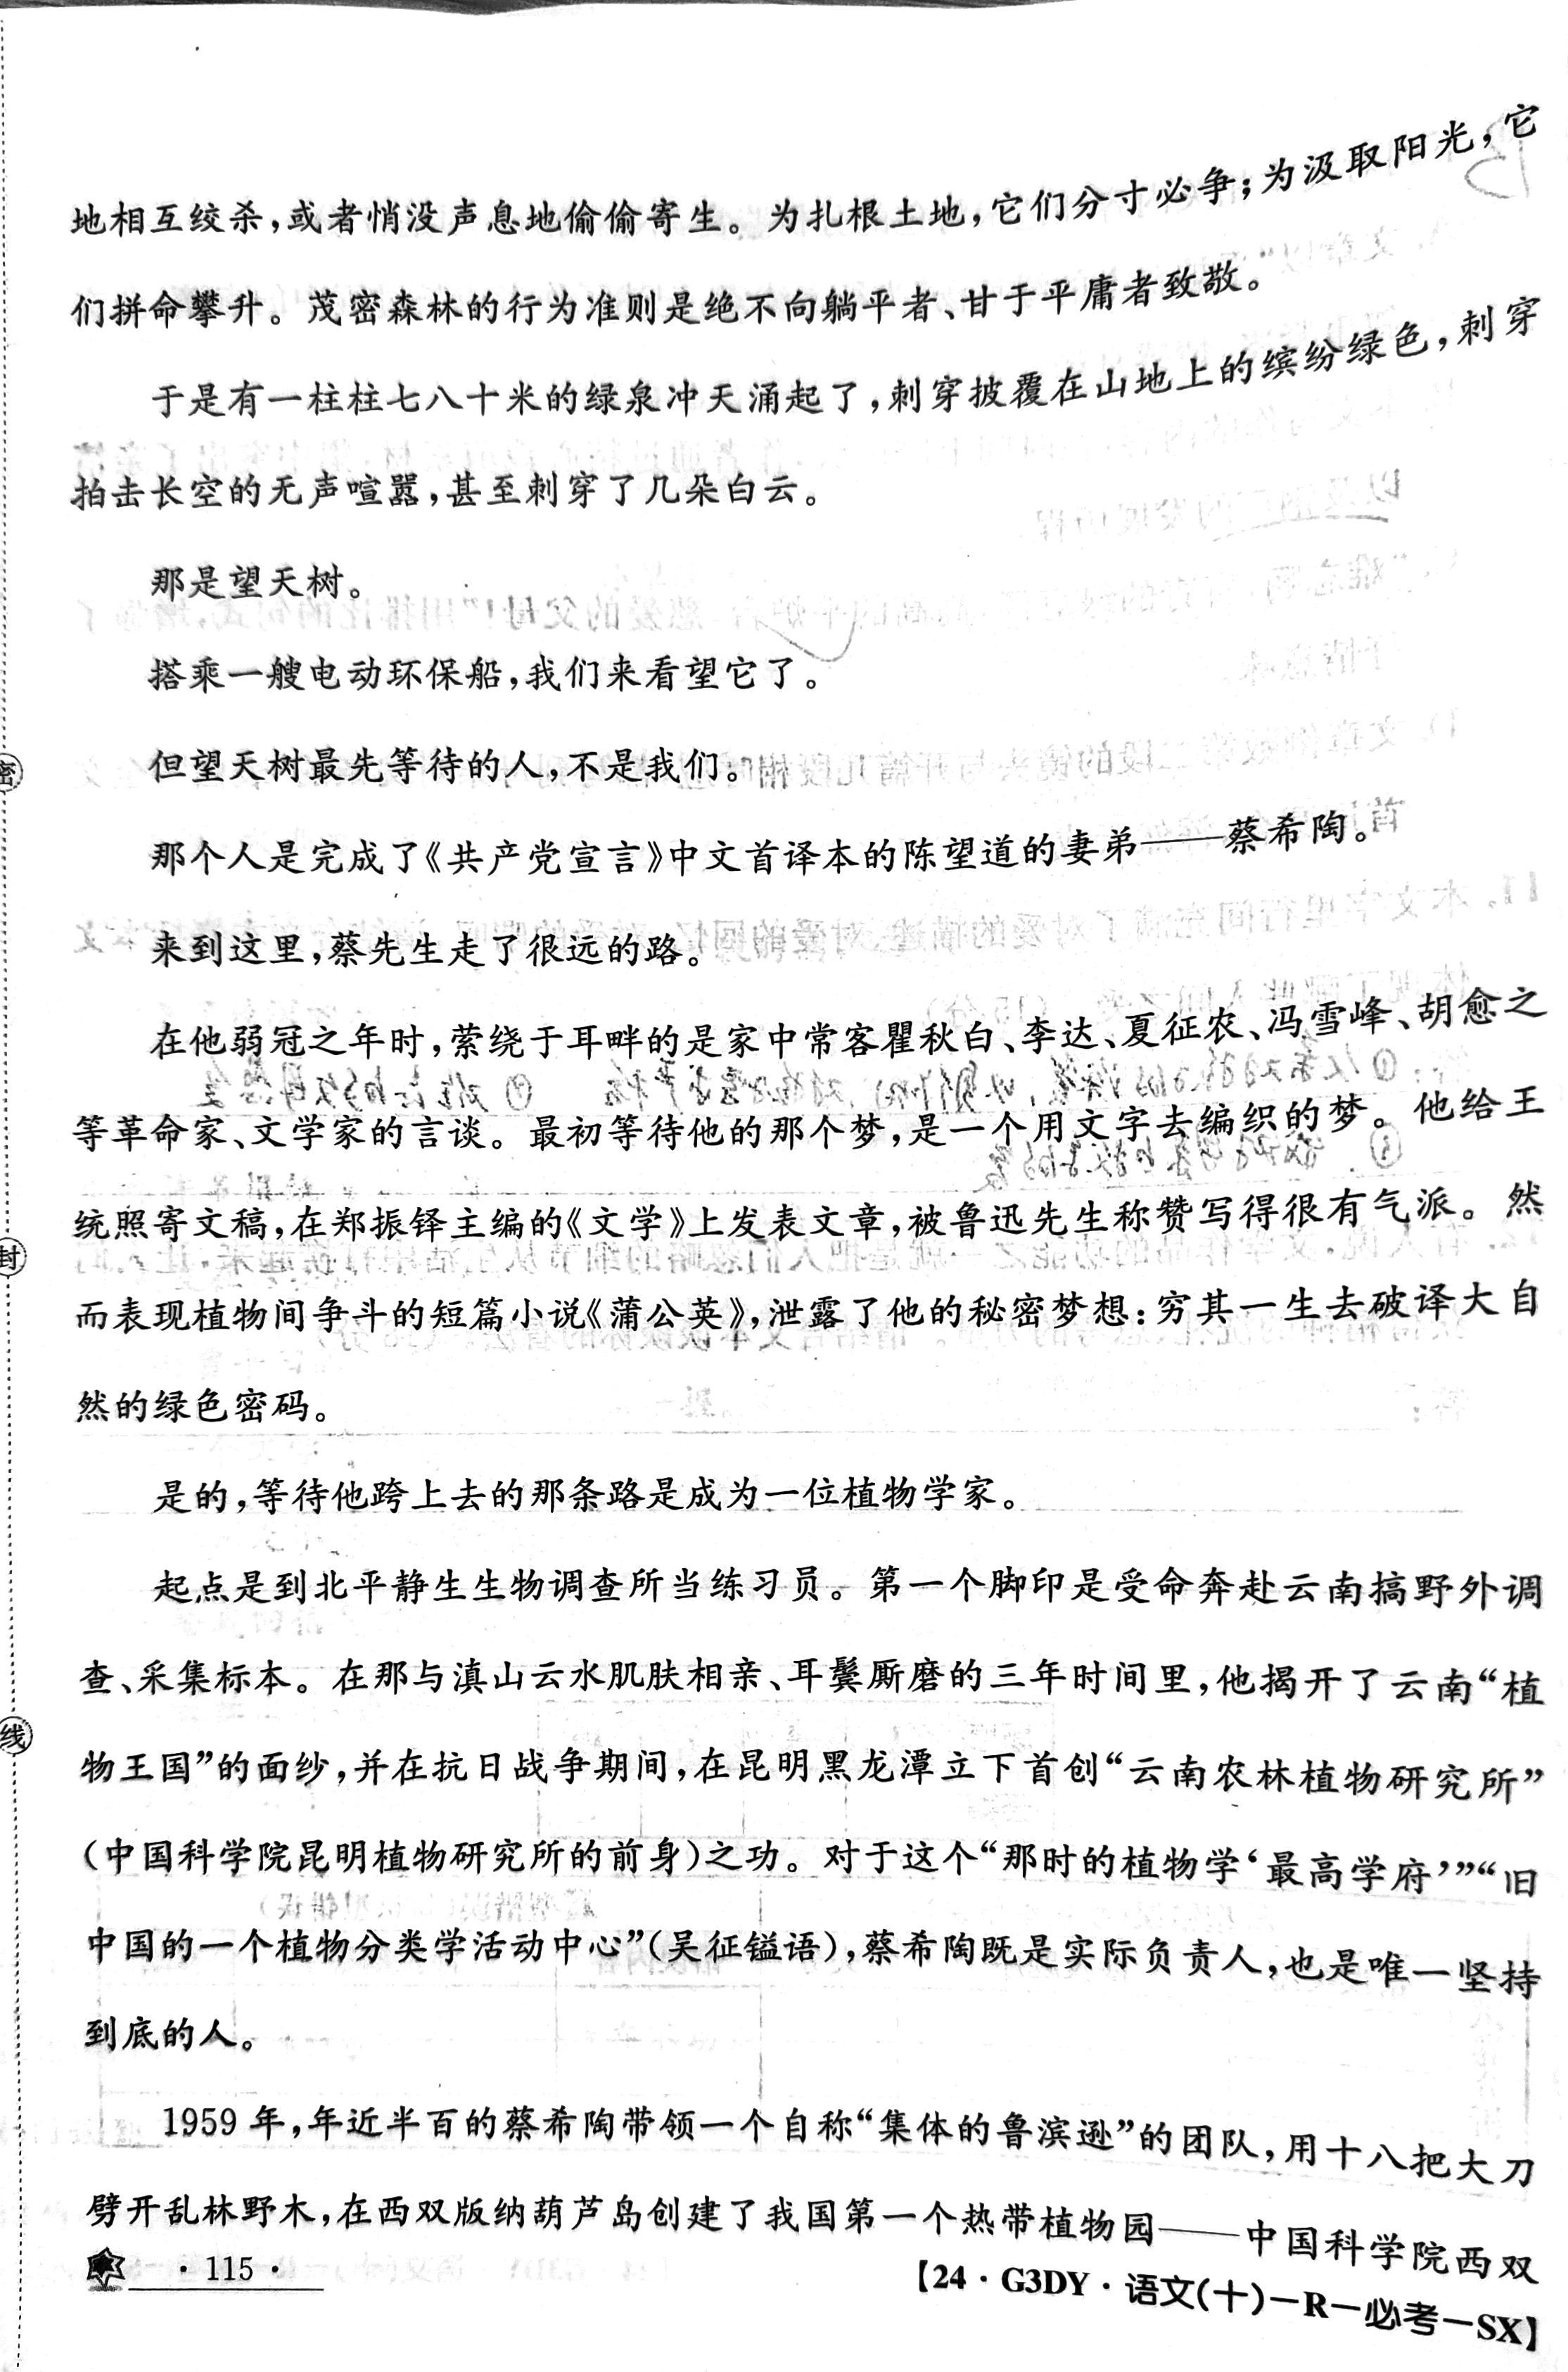 地相互绞杀,或者悄没声息地偷偷寄生。为扎根土地,它们分寸必争;为汲取阳光,它
们拼命攀升。茂密森林的行为准则是绝不向躺平者、甘于平庸者致敬。
于是有一柱柱七八十米的绿泉冲天涌起了,刺穿披覆在山地上的缤纷绿色,刺穿
拍击长空的无声喧嚣,甚至刺穿了几朵白云。
那是望天树。
搭乘一艘电动环保船,我们来看望它了。
但望天树最先等待的人,不是我们。
那个人是完成了《共产党宣言》中文首译本的陈望道的妻弟——蔡希陶。
来到这里,蔡先生走了很远的路。
在他弱冠之年时,萦绕于耳畔的是家中常客瞿秋白、李达、夏征农、冯雪峰、胡愈之
等革命家、文学家的言谈。最初等待他的那个梦,是一个用文字去编织的梦。他给王
统照寄文稿,在郑振铎主编的《文学》上发表文章,被鲁迅先生称赞写得很有气派。然
而表现植物间争斗的短篇小说《蒲公英》,泄露了他的秘密梦想:穷其一生去破译大自
然的绿色密码。
是的,等待他跨上去的那条路是成为一位植物学家。
起点是到北平静生生物调查所当练习员。第一个脚印是受命奔赴云南搞野外调
查、采集标本。在那与滇山云水肌肤相亲、耳鬓厮磨的三年时间里,他揭开了云南“植
物王国”的面纱,并在抗日战争期间,在昆明黑龙潭立下首创“云南农林植物研究所”
(中国科学院昆明植物研究所的前身)之功。对于这个“那时的植物学‘最高学府’”“旧
中国的一个植物分类学活动中心”(吴征镒语),蔡希陶既是实际负责人,也是唯一坚持
到底的人。
1959 年,年近半百的蔡希陶带领一个自称“集体的鲁滨逊”的团队,用十八把大刀
劈开乱林野木,在西双版纳葫芦岛创建了我国第一个热带植物园——中国科学院西双
· 115 ·
【24·G3DY·语文(十)-R-必考-SX】
密
封
线